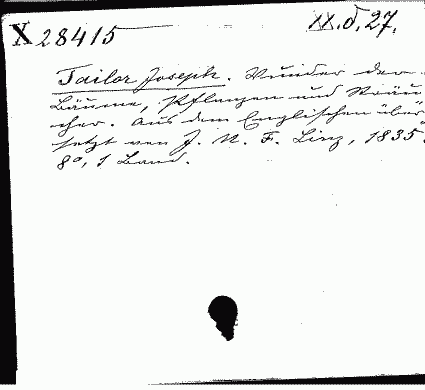 X 28415 XX.d.27.
Tailor Joseph. Wunder der
Bäume, Pflanzen und Sträu
cher. Aus dem Englischen über
setzt von J. N. F. Linz, 1835.
8°, 1 Band.